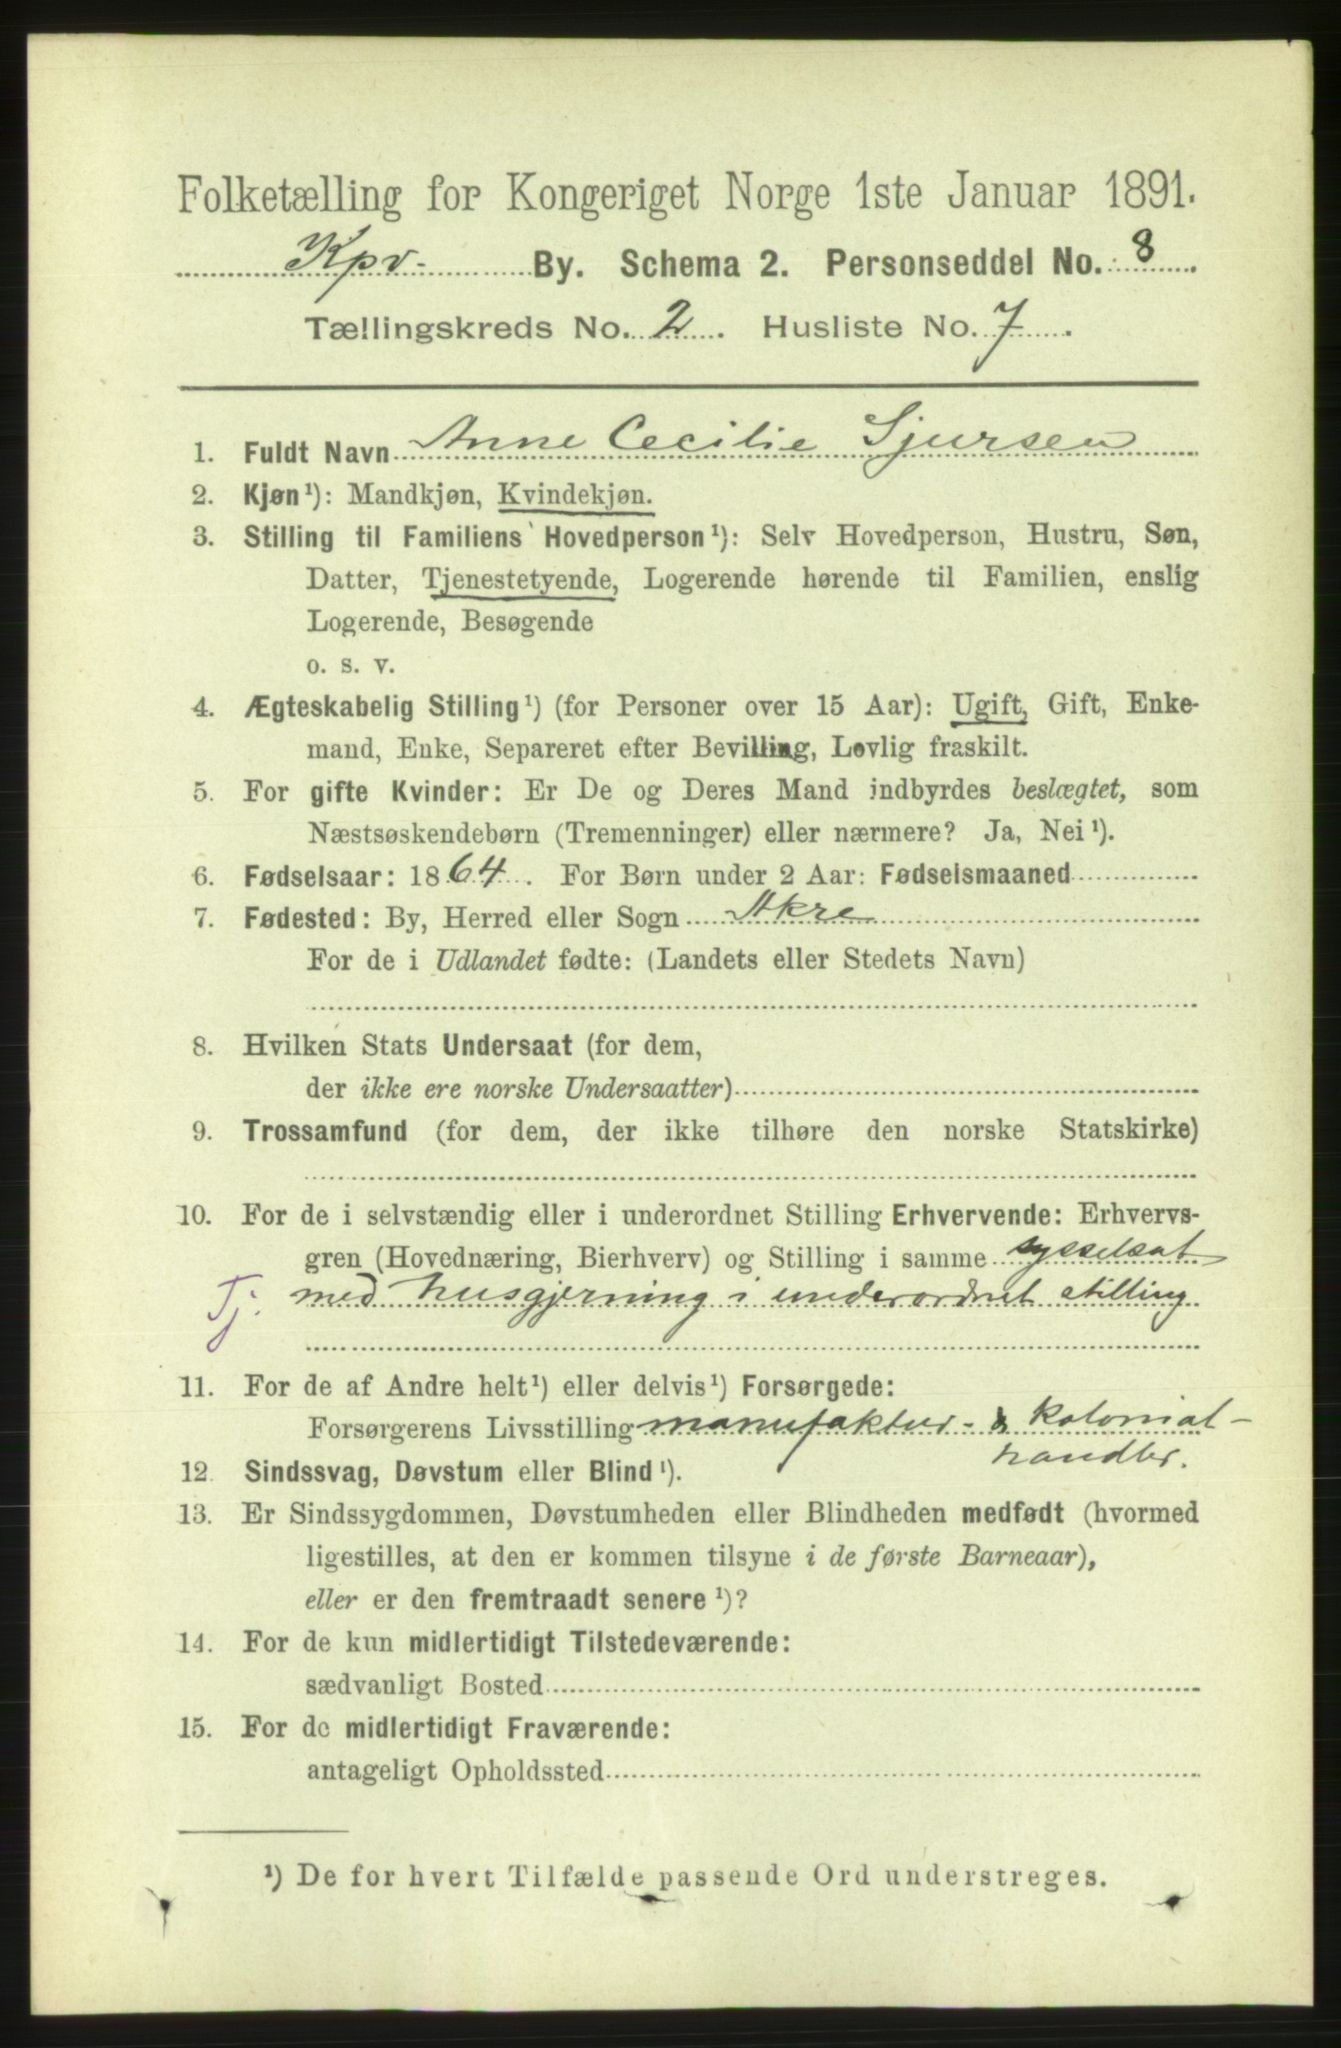 Folketælling for Kongeriget Norge 1ste Januar 1891.
Kpv. By. Schema 2. Personseddel No. 8
Tællingskreds No. 2. Husliste No. 7.
1. Fuldt Navn Anne Cecilie Sjursen
2. Kjøn¹): Mandkjøn, Kvindekjøn.
3. Stilling til Familiens Hovedperson¹): Selv Hovedperson, Hustru, Søn,
Datter, Tjenestetyende, Logerende hørende til Familien, enslig
Logerende, Besøgende
o. s. v.
4. Ægteskabelig Stilling¹) (for Personer over 15 Aar): Ugift, Gift, Enke-
mand, Enke, Separeret efter Bevilling, Lovlig fraskilt.
5. For gifte Kvinder: Er De og Deres Mand indbyrdes beslægtet, som
Næstsøskendebørn (Tremenninger) eller nærmere? Ja, Nei¹).
6. Fødselsaar: 1864. For Børn under 2 Aar: Fødselsmaaned
7. Fødested: By, Herred eller Sogn Akre
For de i Udlandet fødte: (Landets eller Stedets Navn)
8. Hvilken Stats Undersaat (for dem,
der ikke ere norske Undersaatter)
9. Trossamfund (for dem, der ikke tilhøre den norske Statskirke)
10. For de i selvstændig eller i underordnet Stilling Erhvervende: Erhvervs-
gren (Hovednæring, Bierhverv) og Stilling i samme sysselsat
Tj. med husgjerning i underordnet stilling
11. For de af Andre helt¹) eller delvis¹) Forsørgede:
Forsørgerens Livsstilling manufaktur- & kolonial-
handler.
12. Sindssvag, Døvstum eller Blind¹).
13. Er Sindssygdommen, Døvstumheden eller Blindheden medfødt (hvormed
ligestilles, at den er kommen tilsyne i de første Barneaar),
eller er den fremtraadt senere¹)?
14. For de kun midlertidigt Tilstedeværende:
sædvanligt Bosted
15. For de midlertidigt Fraværende:
antageligt Opholdssted
¹) De for hvert Tilfælde passende Ord understreges.